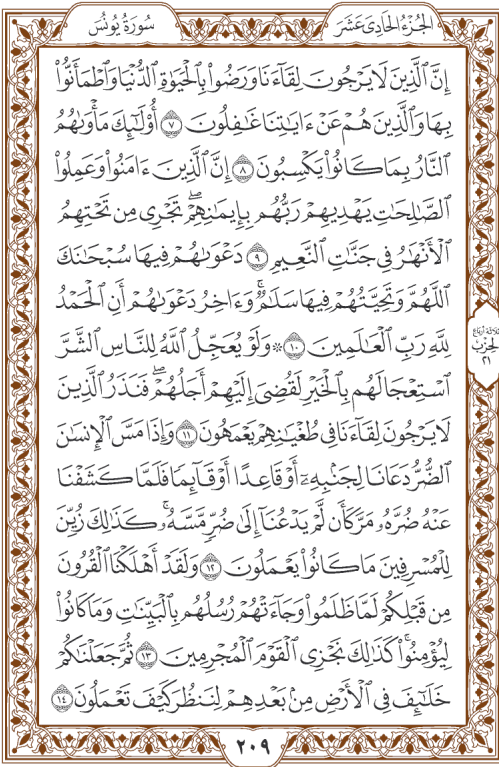 الجزء الحادي عشر
سورة يونس
إِنَّ ٱلَّذِينَ لَا يَرْجُونَ لِقَآءَنَا وَرَضُوا۟ بِٱلْحَيَوٰةِ ٱلدُّنْيَا وَٱطْمَأَنُّوا۟
بِهَا وَٱلَّذِينَ هُمْ عَنْ ءَايَٰتِنَا غَٰفِلُونَ ٧ أُو۟لَٰٓئِكَ مَأْوَىٰهُمُ
ٱلنَّارُ بِمَا كَانُوا۟ يَكْسِبُونَ ٨ إِنَّ ٱلَّذِينَ ءَامَنُوا۟ وَعَمِلُوا۟
ٱلصَّٰلِحَٰتِ يَهْدِيهِمْ رَبُّهُم بِإِيمَٰنِهِمْ ۖ تَجْرِى مِن تَحْتِهِمُ
ٱلْأَنْهَٰرُ فِى جَنَّٰتِ ٱلنَّعِيمِ ٩ دَعْوَىٰهُمْ فِيهَا سُبْحَٰنَكَ
ٱللَّهُمَّ وَتَحِيَّتُهُمْ فِيهَا سَلَٰمٌ ۚ وَءَاخِرُ دَعْوَىٰهُمْ أَنِ ٱلْحَمْدُ
لِلَّهِ رَبِّ ٱلْعَٰلَمِينَ ١٠ ۞ وَلَوْ يُعَجِّلُ ٱللَّهُ لِلنَّاسِ ٱلشَّرَّ
ٱسْتِعْجَالَهُم بِٱلْخَيْرِ لَقُضِىَ إِلَيْهِمْ أَجَلُهُمْ ۖ فَنَذَرُ ٱلَّذِينَ
لَا يَرْجُونَ لِقَآءَنَا فِى طُغْيَٰنِهِمْ يَعْمَهُونَ ١١ وَإِذَا مَسَّ ٱلْإِنسَٰنَ
ٱلضُّرُّ دَعَانَا لِجَنۢبِهِۦٓ أَوْ قَاعِدًا أَوْ قَآئِمًا فَلَمَّا كَشَفْنَا
عَنْهُ ضُرَّهُۥ مَرَّ كَأَن لَّمْ يَدْعُنَآ إِلَىٰ ضُرٍّ مَّسَّهُۥ ۚ كَذَٰلِكَ زُيِّنَ
لِلْمُسْرِفِينَ مَا كَانُوا۟ يَعْمَلُونَ ١٢ وَلَقَدْ أَهْلَكْنَا ٱلْقُرُونَ
مِن قَبْلِكُمْ لَمَّا ظَلَمُوا۟ وَجَآءَتْهُمْ رُسُلُهُم بِٱلْبَيِّنَٰتِ وَمَا كَانُوا۟
لِيُؤْمِنُوا۟ ۚ كَذَٰلِكَ نَجْزِى ٱلْقَوْمَ ٱلْمُجْرِمِينَ ١٣ ثُمَّ جَعَلْنَٰكُمْ
خَلَٰٓئِفَ فِى ٱلْأَرْضِ مِنۢ بَعْدِهِمْ لِنَنظُرَ كَيْفَ تَعْمَلُونَ ١٤
ثلاثة أرباع
الحزب
٢١
٢٠٩